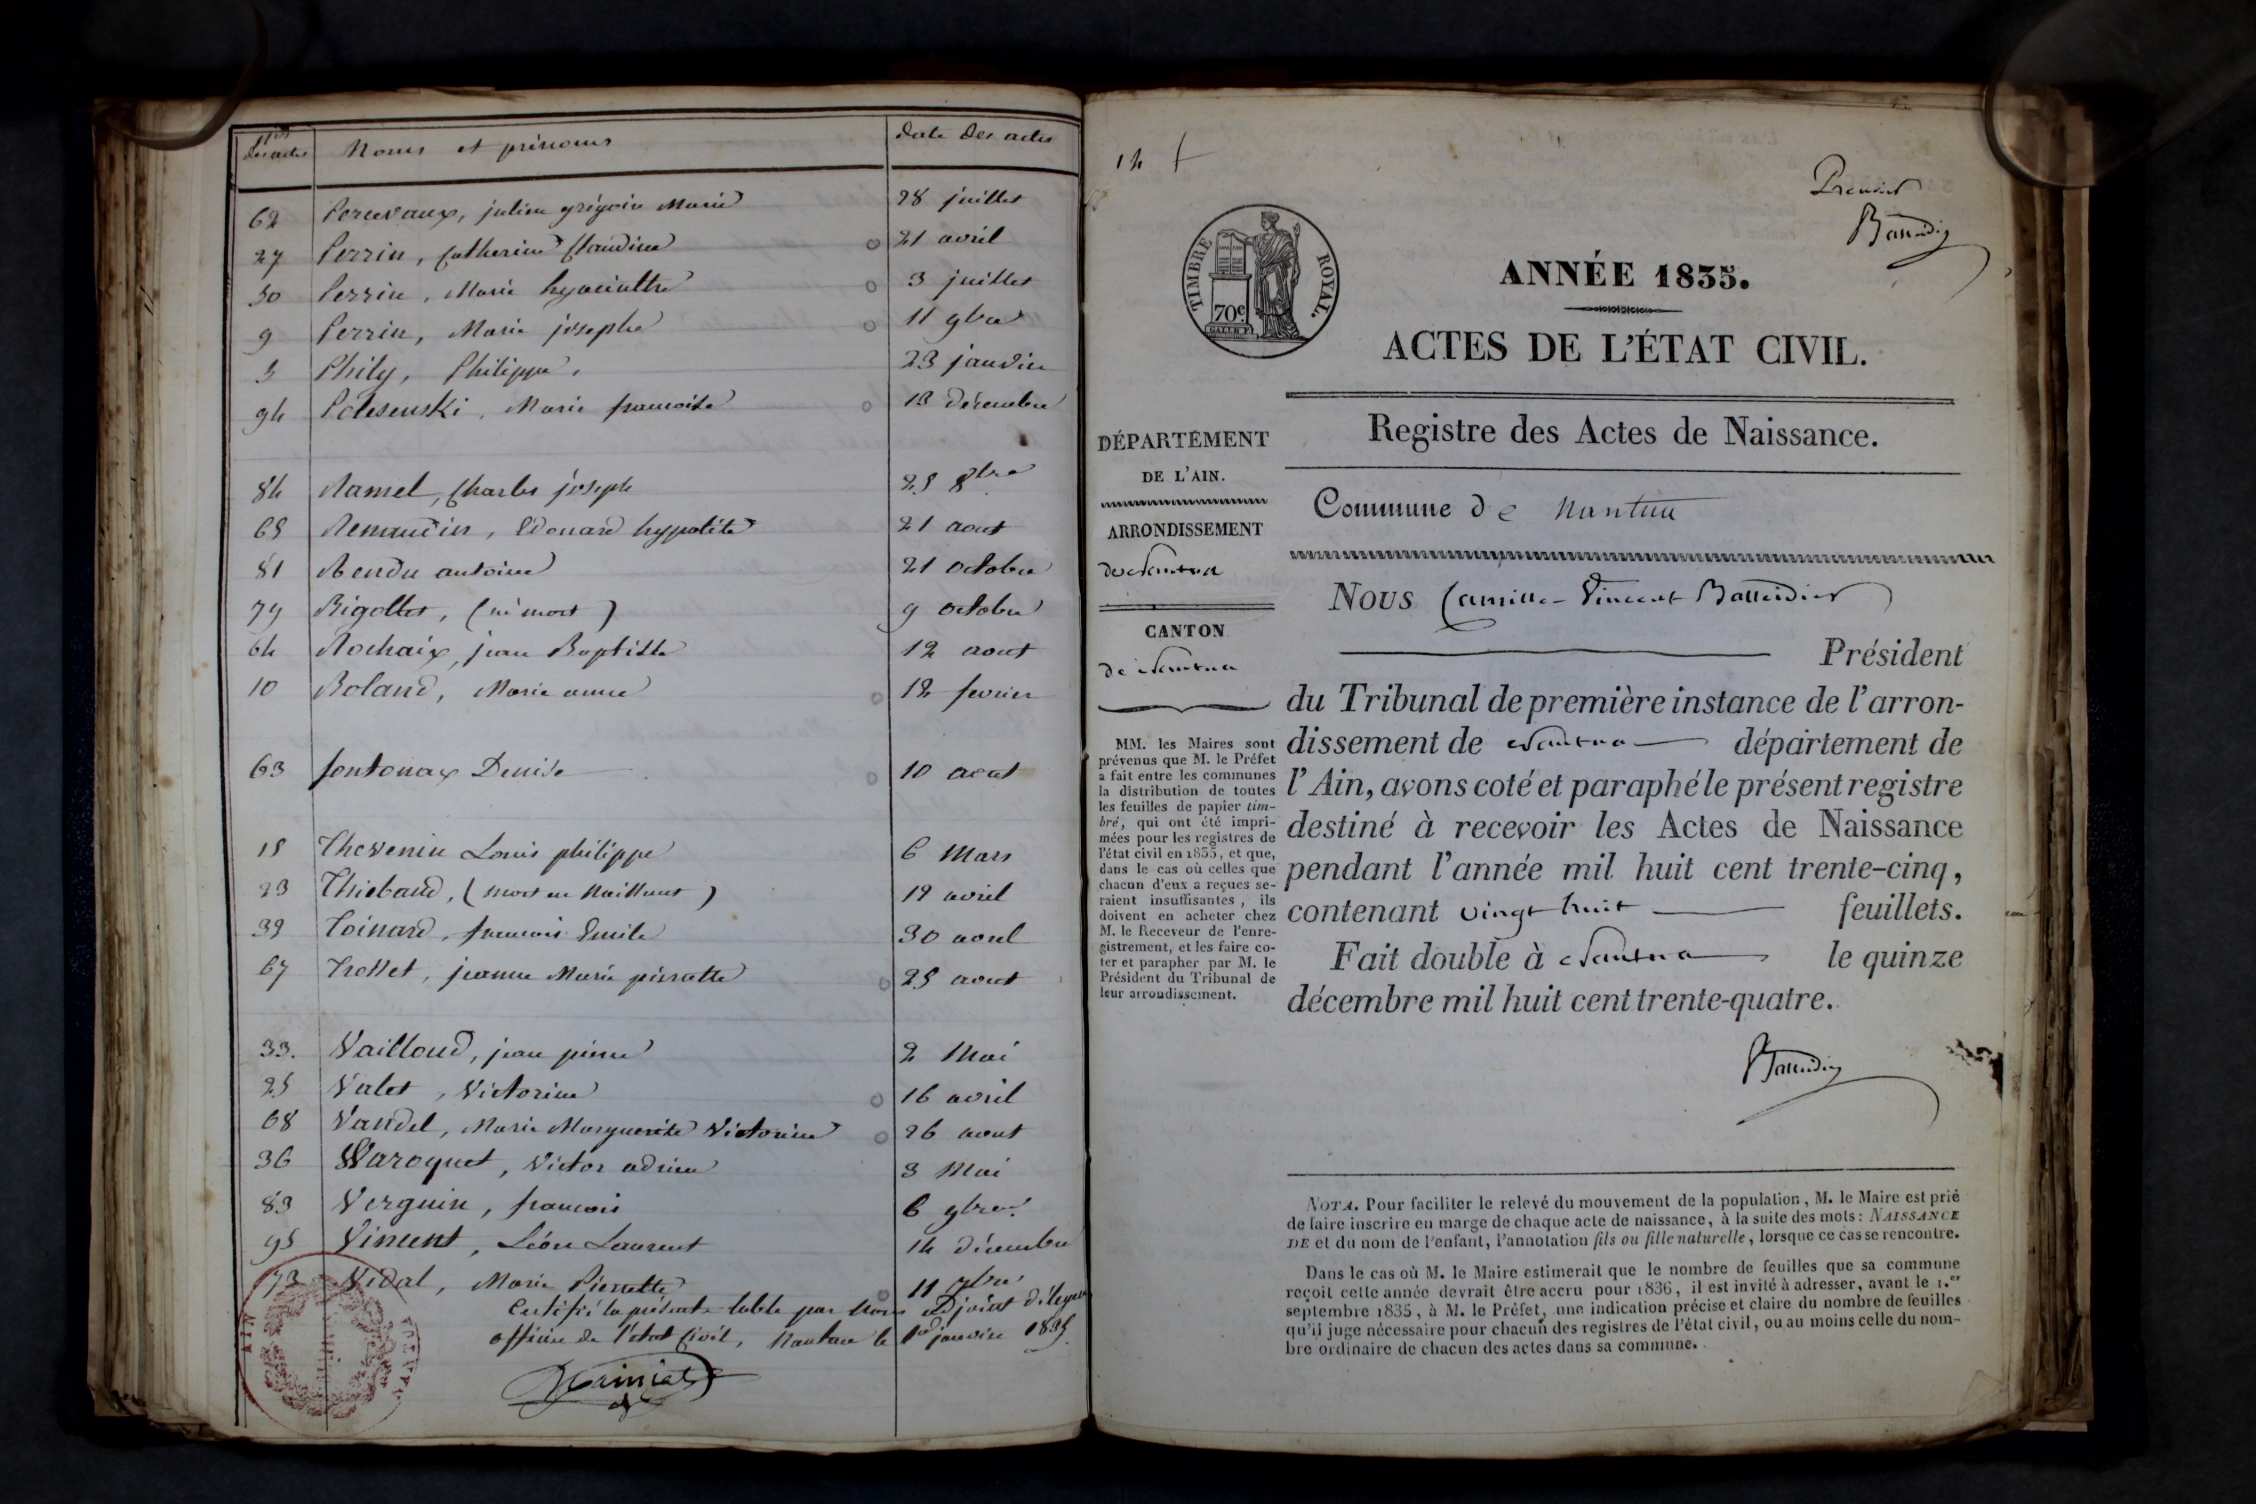 Nos des actes Noms et prénoms Date des actes
62 Perrevaux, julien grégoire Marie 28 juillet
27 Perrin, Catherine Claudine 21 avril
50 Perrin, Marie hyacinthe 3 juillet
9 Perrin, Marie josephe 11 9bre
5 Phily, Philippe, 23 janvier
94 Polesenski, Marie francoise 13 décembre
84 Ramel, Charles joseph 25 8bre
65 Renaudin, Edouard hypolite 21 aout
81 Rendu antoine 21 octobre
79 Rigollet, (né mort) 9 octobre
64 Rochaix, jean Baptiste 12 aout
10 Roland, Marie anne 12 fevrier
63 fontonax Denise 10 aout
15 Thevenin Louis philippe 6 Mars
23 Thiebaud, (mort en Naissant) 12 avril
32 Toinard, francois Emile 30 avril
67 Trollet, jeanne Marie pierrette 25 aout
33. Vailloud, jean pierre 2 Mai
25 Valet, Victorine 16 avril
68 Vandel, Marie Marguerite Victorine 26 aout
36 Waroquet, Victor adrien 3 Mai
83 Verguin, francois 6 9bre.
95 Vincent, Léon Laurent 14 décembre
73 Vidal, Marie Pierrette 11 7bre
Certifié la présente table par Nous adjoint délégué
officier de l'état Civil, Nantua le 1er janvier 1835.
AIN
14
Premier
Battendier
TIMBRE ROYAL.
70c.
ANNÉE 1835.
ACTES DE L'ÉTAT CIVIL.
Registre des Actes de Naissance.
DÉPARTEMENT
DE L'AIN.
ARRONDISSEMENT
de Nantua
CANTON
de Nantua
MM. les Maires sont
prévenus que M. le Préfet
a fait entre les communes
la distribution de toutes
les feuilles de papier tim-
bré, qui ont été impri-
mées pour les registres de
l'état civil en 1835, et que,
dans le cas où celles que
chacun d'eux a reçues se-
raient insuffisantes, ils
doivent en acheter chez
M. le Receveur de l'enre-
gistrement, et les faire co-
ter et parapher par M. le
Président du Tribunal de
leur arrondissement.
Commune de Nantua
Nous Camille-Vincent Battendier
Président
du Tribunal de première instance de l'arron-
dissement de Nantua département de
l'Ain, avons coté et paraphé le présent registre
destiné à recevoir les Actes de Naissance
pendant l'année mil huit cent trente-cinq,
contenant vingt huit feuillets.
Fait double à Nantua le quinze
décembre mil huit cent trente-quatre.
Battendier
NOTA. Pour faciliter le relevé du mouvement de la population, M. le Maire est prié
de faire inscrire en marge de chaque acte de naissance, à la suite des mots: NAISSANCE
DE et du nom de l'enfant, l'annotation fils ou fille naturelle, lorsque ce cas se rencontre.
Dans le cas où M. le Maire estimerait que le nombre de feuilles que sa commune
reçoit cette année devrait être accru pour 1836, il est invité à adresser, avant le 1.er
septembre 1835, à M. le Préfet, une indication précise et claire du nombre de feuilles
qu'il juge nécessaire pour chacun des registres de l'état civil, ou au moins celle du nom-
bre ordinaire de chacun des actes dans sa commune.